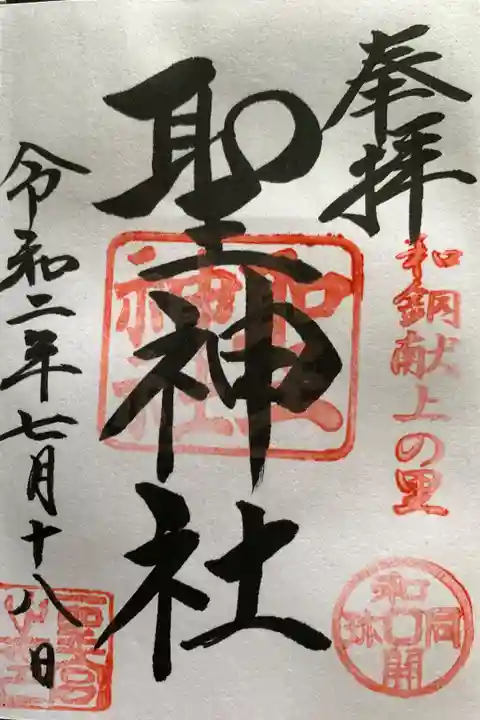 奉拝
和銅献上の里
和同開珎
聖神社
聖神社
令和二年七月十八日